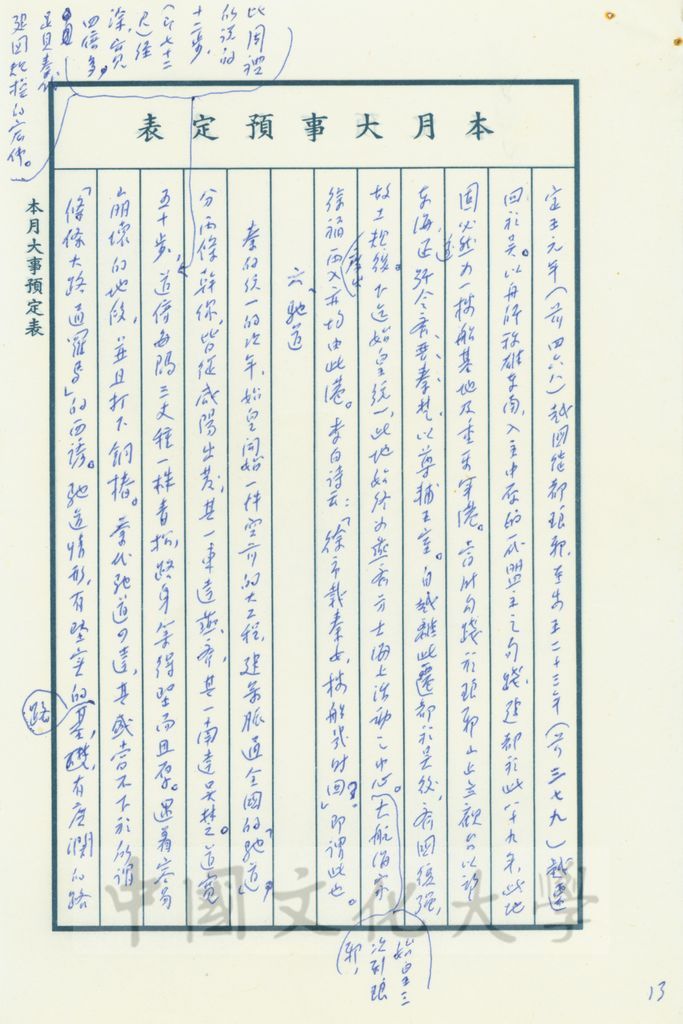 本月大事預定表
定王元年(前四六八)越國從都琅琊,至安王二十三年(前三七九)越遷
回於吳。以舟師稱雄東南,入主中原的一代盟主之句踐,建都於此八十九年,此地
固必然為一機船基地及重要軍港。當時句踐於琅琊山上立觀台以望
東海,還號令齊、晉、秦、楚,以尊輔王室。自越離此遷都於吳後,齊國復強,
故土規復。下迄始皇統一,此地始終為燕齊方士海上活動之中心。大航海家
徐福兩入(率出)亦均由此港。李白詩云:「徐市載秦女,樓船幾時回?」即謂此也。
六、馳道
秦的統一的次年,始皇開始一件空前的大工程,建築脈通全國的「馳道」,
分兩條幹線,皆從咸陽出發,其一東達燕齊,其一南達吳楚。道寬
五十步,道傍每隔三丈種一株青松,路身築得堅而且厚。遇著容易
崩壞的地段,並且打下銅樁。秦代馳道之遠,其盛當不下於所謂
「條條大路通羅馬」的西諺。馳道情形,有堅實的基礎,有廣濶的路
路
此周禮
所說的
十二步,
(即七十二
尺)
深寬
四倍多。
足見秦代
強國規模的宏偉。
始皇三
次到琅
琊,
本月大事預定表
中國文化大學
13